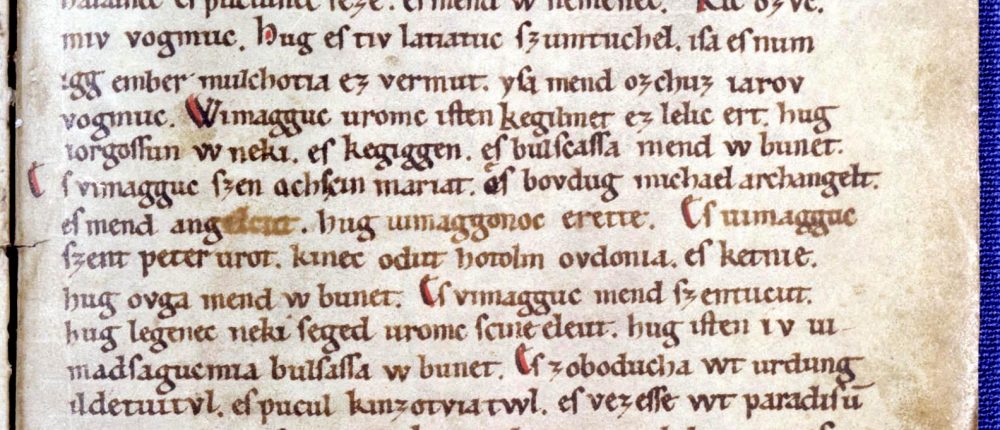 halalnec es puculnec feze. es mend w nemenec. Kic ozvc.
miv vogmuc. Hug es tiv latiatuc szumtuchel. isa es num
igg ember mulchotia ez vermut. ysa mend ozchuz iarov
vogmuc. Wimagguc uromc isten kegilmet ez lelic ert. hug
iorgossun w neki. es kegiggen. es bulscassa mend w bunet.
Es vimagguc szen achscin mariat. es bovdug michael archangelt.
es mend angelcut. hug uimaggonoc erette. Es uimagguc
szent peter urot. kinec odut hotolm ovdonia. es ketnie.
hug ovga mend w bunet. Es vimagguc mend szentucut.
hug legenec neki seged uromc scine eleut. hug isten iv ui-
madsagucmia bulsassa w bunet. Es zoboducha wt urdung
ildetuitvl. es pucul kinzotviatwl. es vezesse wt paradisū